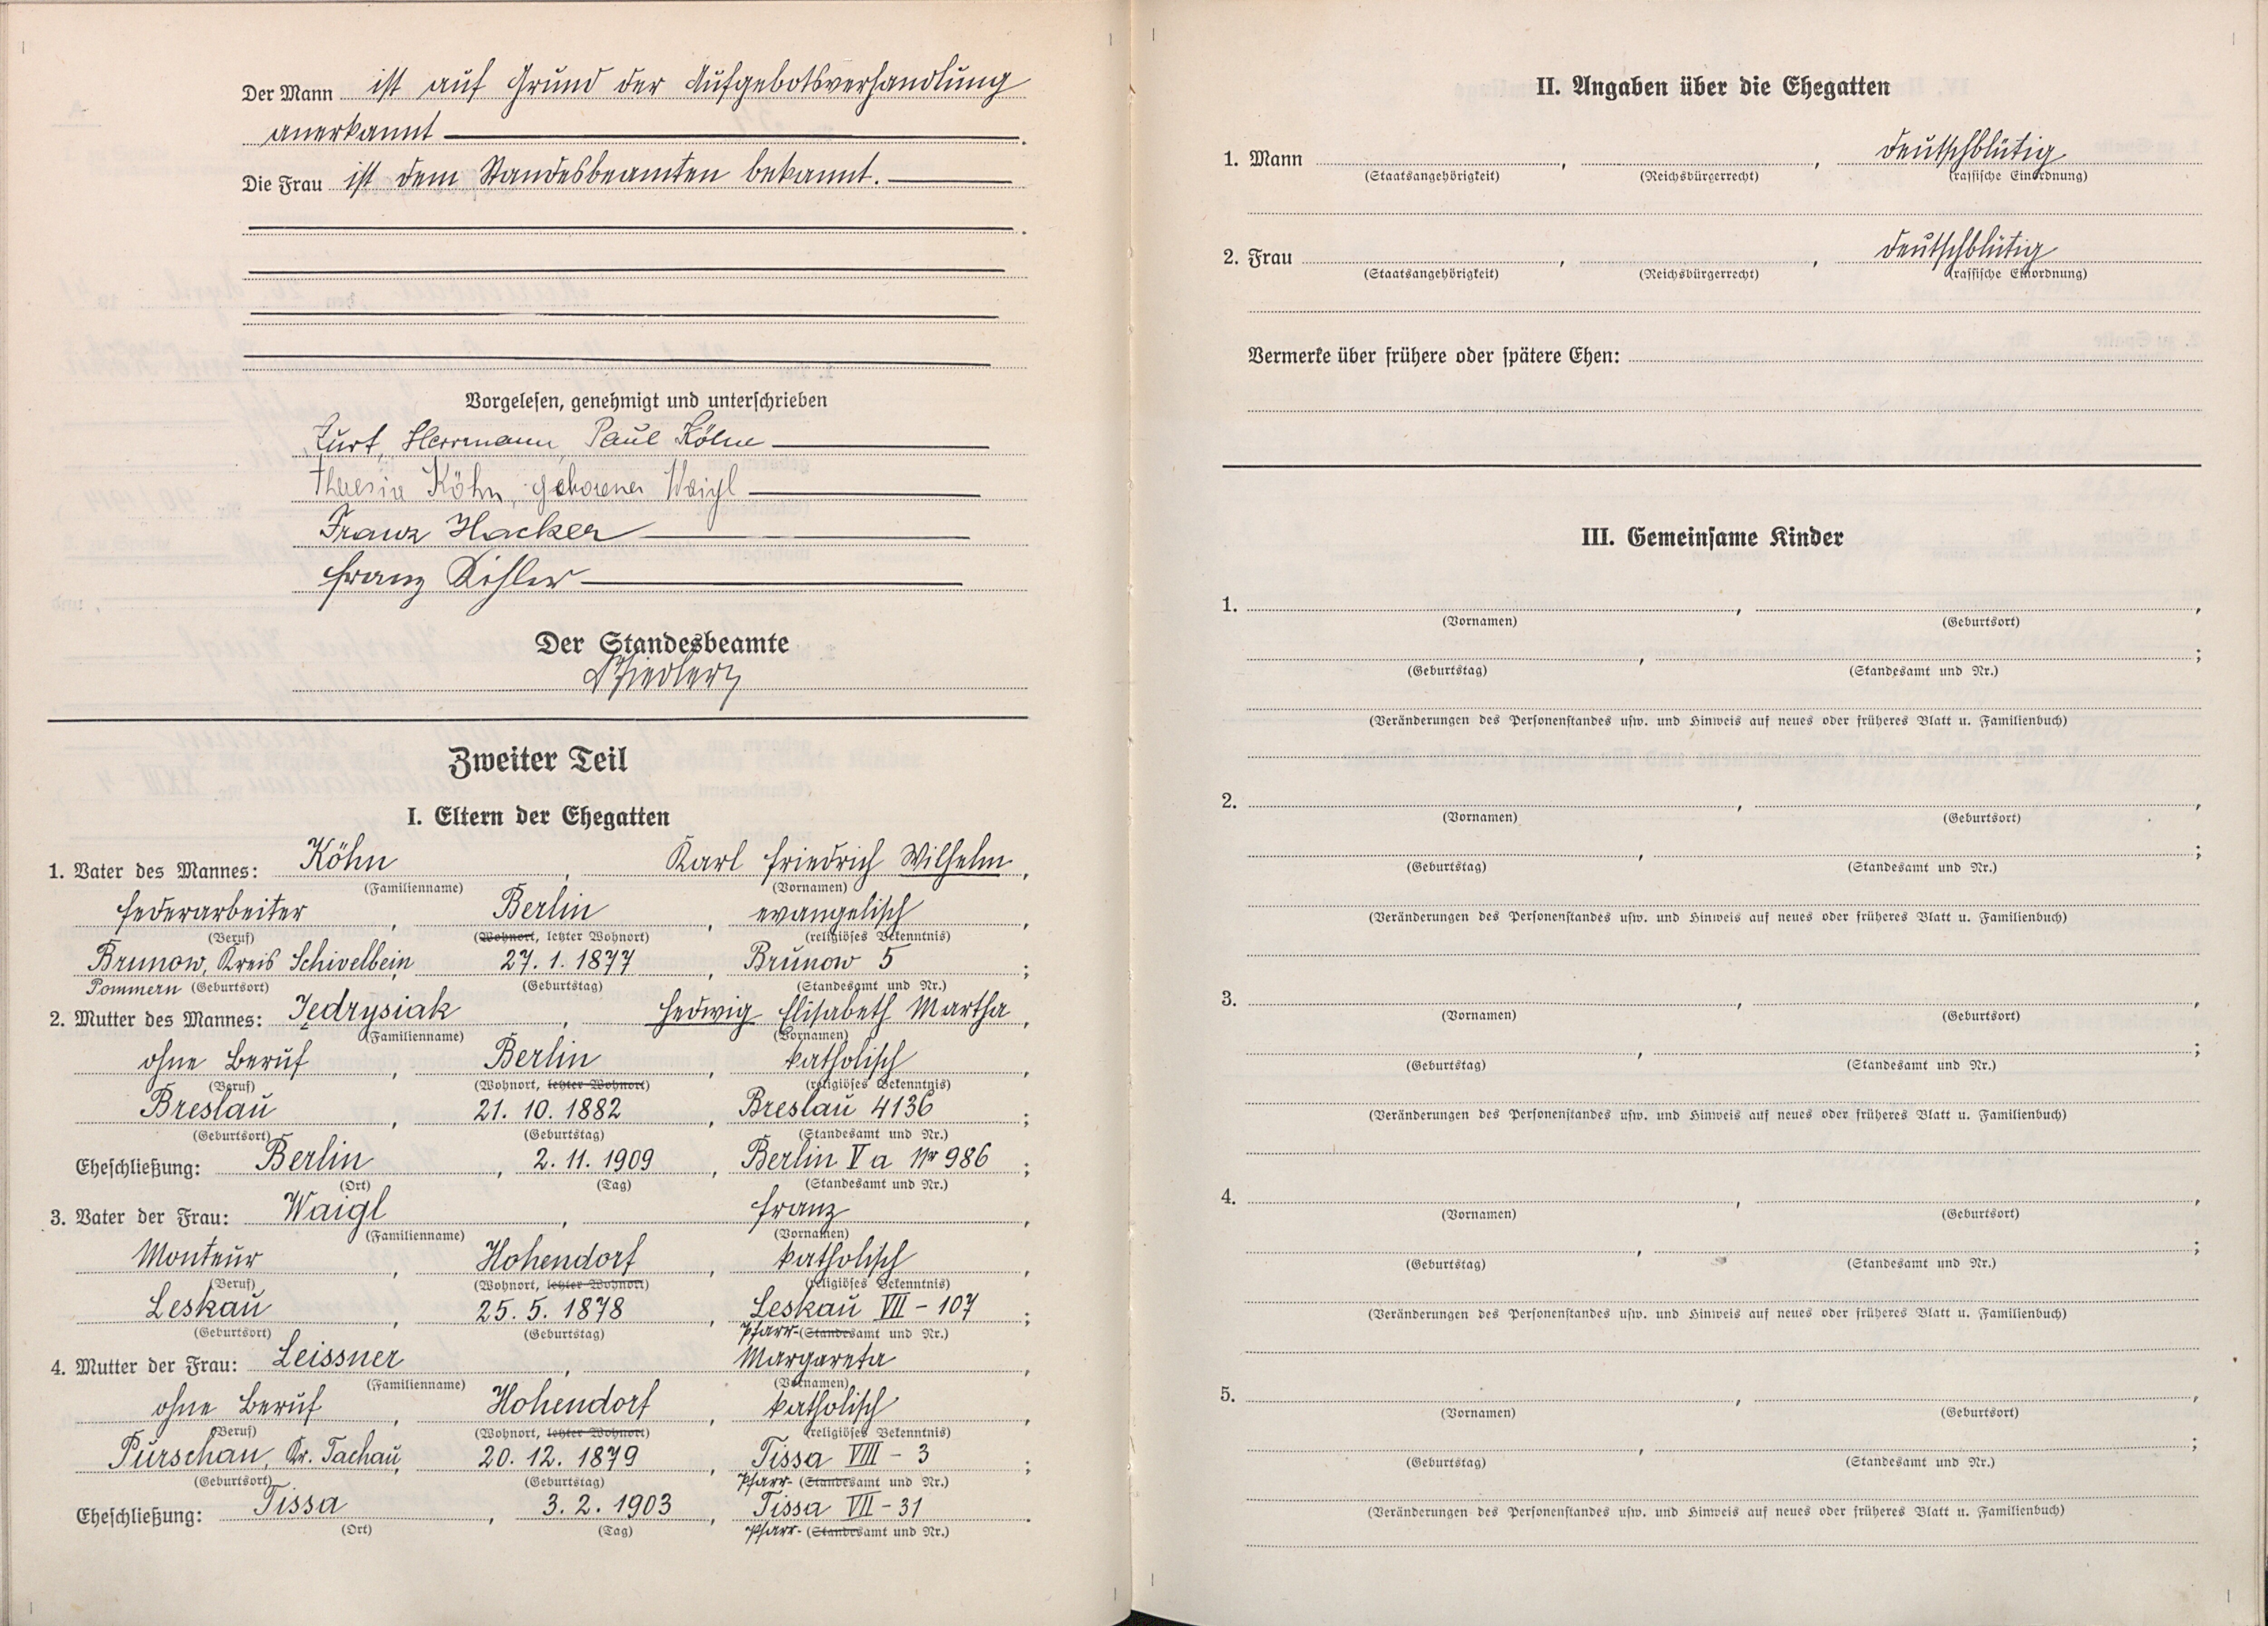 Der Mann ist auf Grund der Aufgebotsverhandlung
anerkannt
Die Frau ist dem Standesbeamten bekannt.
Vorgelesen, genehmigt und unterschrieben
Kurt, Herrmann, Paul Köhn
Theresia Köhn, geborener Waigl
Franz Hacker
Franz Köhler
Der Standesbeamte
Zweiter Teil
I. Eltern der Ehegatten
1. Vater des Mannes: Köhn, Karl Friedrich Wilhelm,
(Familienname) (Vornamen)
Federarbeiter, Berlin, evangelisch,
(Beruf) (Wohnort, letzter Wohnort) (religiöses Bekenntnis)
Brunow, Kreis Schivelbein, 27. 1. 1877, Brunow 5;
Pommern (Geburtsort) (Geburtstag) (Standesamt und Nr.)
2. Mutter des Mannes: Jędrysiak, Hedwig Elisabeth Martha,
(Familienname) (Vornamen)
ohne Beruf, Berlin, katholisch,
(Beruf) (Wohnort, letzter Wohnort) (religiöses Bekenntnis)
Breslau, 21. 10. 1882, Breslau 4136;
(Geburtsort) (Geburtstag) (Standesamt und Nr.)
Eheschließung: Berlin, 2. 11. 1909, Berlin V a Nr 986;
(Ort) (Tag) (Standesamt und Nr.)
3. Vater der Frau: Waigl, Franz,
(Familienname) (Vornamen)
Monteur, Hohendorf, katholisch,
(Beruf) (Wohnort, letzter Wohnort) (religiöses Bekenntnis)
Leskau, 25. 5. 1878, Leskau VII - 107;
(Geburtsort) (Geburtstag) Pfarr-(Standesamt und Nr.)
4. Mutter der Frau: Leissner, Margareta,
(Familienname) (Vornamen)
ohne Beruf, Hohendorf, katholisch,
(Beruf) (Wohnort, letzter Wohnort) (religiöses Bekenntnis)
Purschau, Kr. Tachau, 20. 12. 1879, Tissa VIII - 3;
(Geburtsort) (Geburtstag) Pfarr- (Standesamt und Nr.)
Eheschließung: Tissa, 3. 2. 1903, Tissa VII - 31.
(Ort) (Tag) Pfarr- (Standesamt und Nr.)
II. Angaben über die Ehegatten
1. Mann , , deutschblütig
(Staatsangehörigkeit) (Reichsbürgerrecht) (rassische Einordnung)
2. Frau , , deutschblütig
(Staatsangehörigkeit) (Reichsbürgerrecht) (rassische Einordnung)
Vermerke über frühere oder spätere Ehen:
III. Gemeinsame Kinder
1. , ,
(Vornamen) (Geburtsort)
, ;
(Geburtstag) (Standesamt und Nr.)
(Veränderungen des Personenstandes usw. und Hinweis auf neues oder früheres Blatt u. Familienbuch)
2. , ,
(Vornamen) (Geburtsort)
, ;
(Geburtstag) (Standesamt und Nr.)
(Veränderungen des Personenstandes usw. und Hinweis auf neues oder früheres Blatt u. Familienbuch)
3. , ,
(Vornamen) (Geburtsort)
, ;
(Geburtstag) (Standesamt und Nr.)
(Veränderungen des Personenstandes usw. und Hinweis auf neues oder früheres Blatt u. Familienbuch)
4. , ,
(Vornamen) (Geburtsort)
, ;
(Geburtstag) (Standesamt und Nr.)
(Veränderungen des Personenstandes usw. und Hinweis auf neues oder früheres Blatt u. Familienbuch)
5. , ,
(Vornamen) (Geburtsort)
, ;
(Geburtstag) (Standesamt und Nr.)
(Veränderungen des Personenstandes usw. und Hinweis auf neues oder früheres Blatt u. Familienbuch)